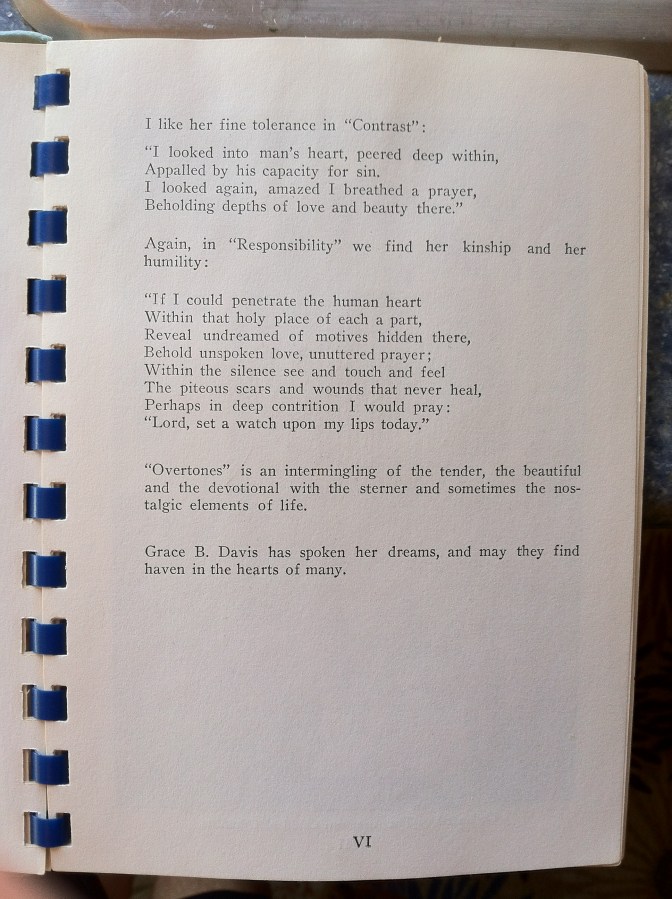 I like her fine tolerance in “Contrast”:
“I looked into man’s heart, peered deep within,
Appalled by his capacity for sin.
I looked again, amazed I breathed a prayer,
Beholding depths of love and beauty there.”
Again, in “Responsibility” we find her kinship and her
humility:
“If I could penetrate the human heart
Within that holy place of each a part,
Reveal undreamed of motives hidden there,
Behold unspoken love, unuttered prayer;
Within the silence see and touch and feel
The piteous scars and wounds that never heal,
Perhaps in deep contrition I would pray:
“Lord, set a watch upon my lips today.”
“Overtones” is an intermingling of the tender, the beautiful
and the devotional with the sterner and sometimes the nos-
talgic elements of life.
Grace B. Davis has spoken her dreams, and may they find
haven in the hearts of many.
VI